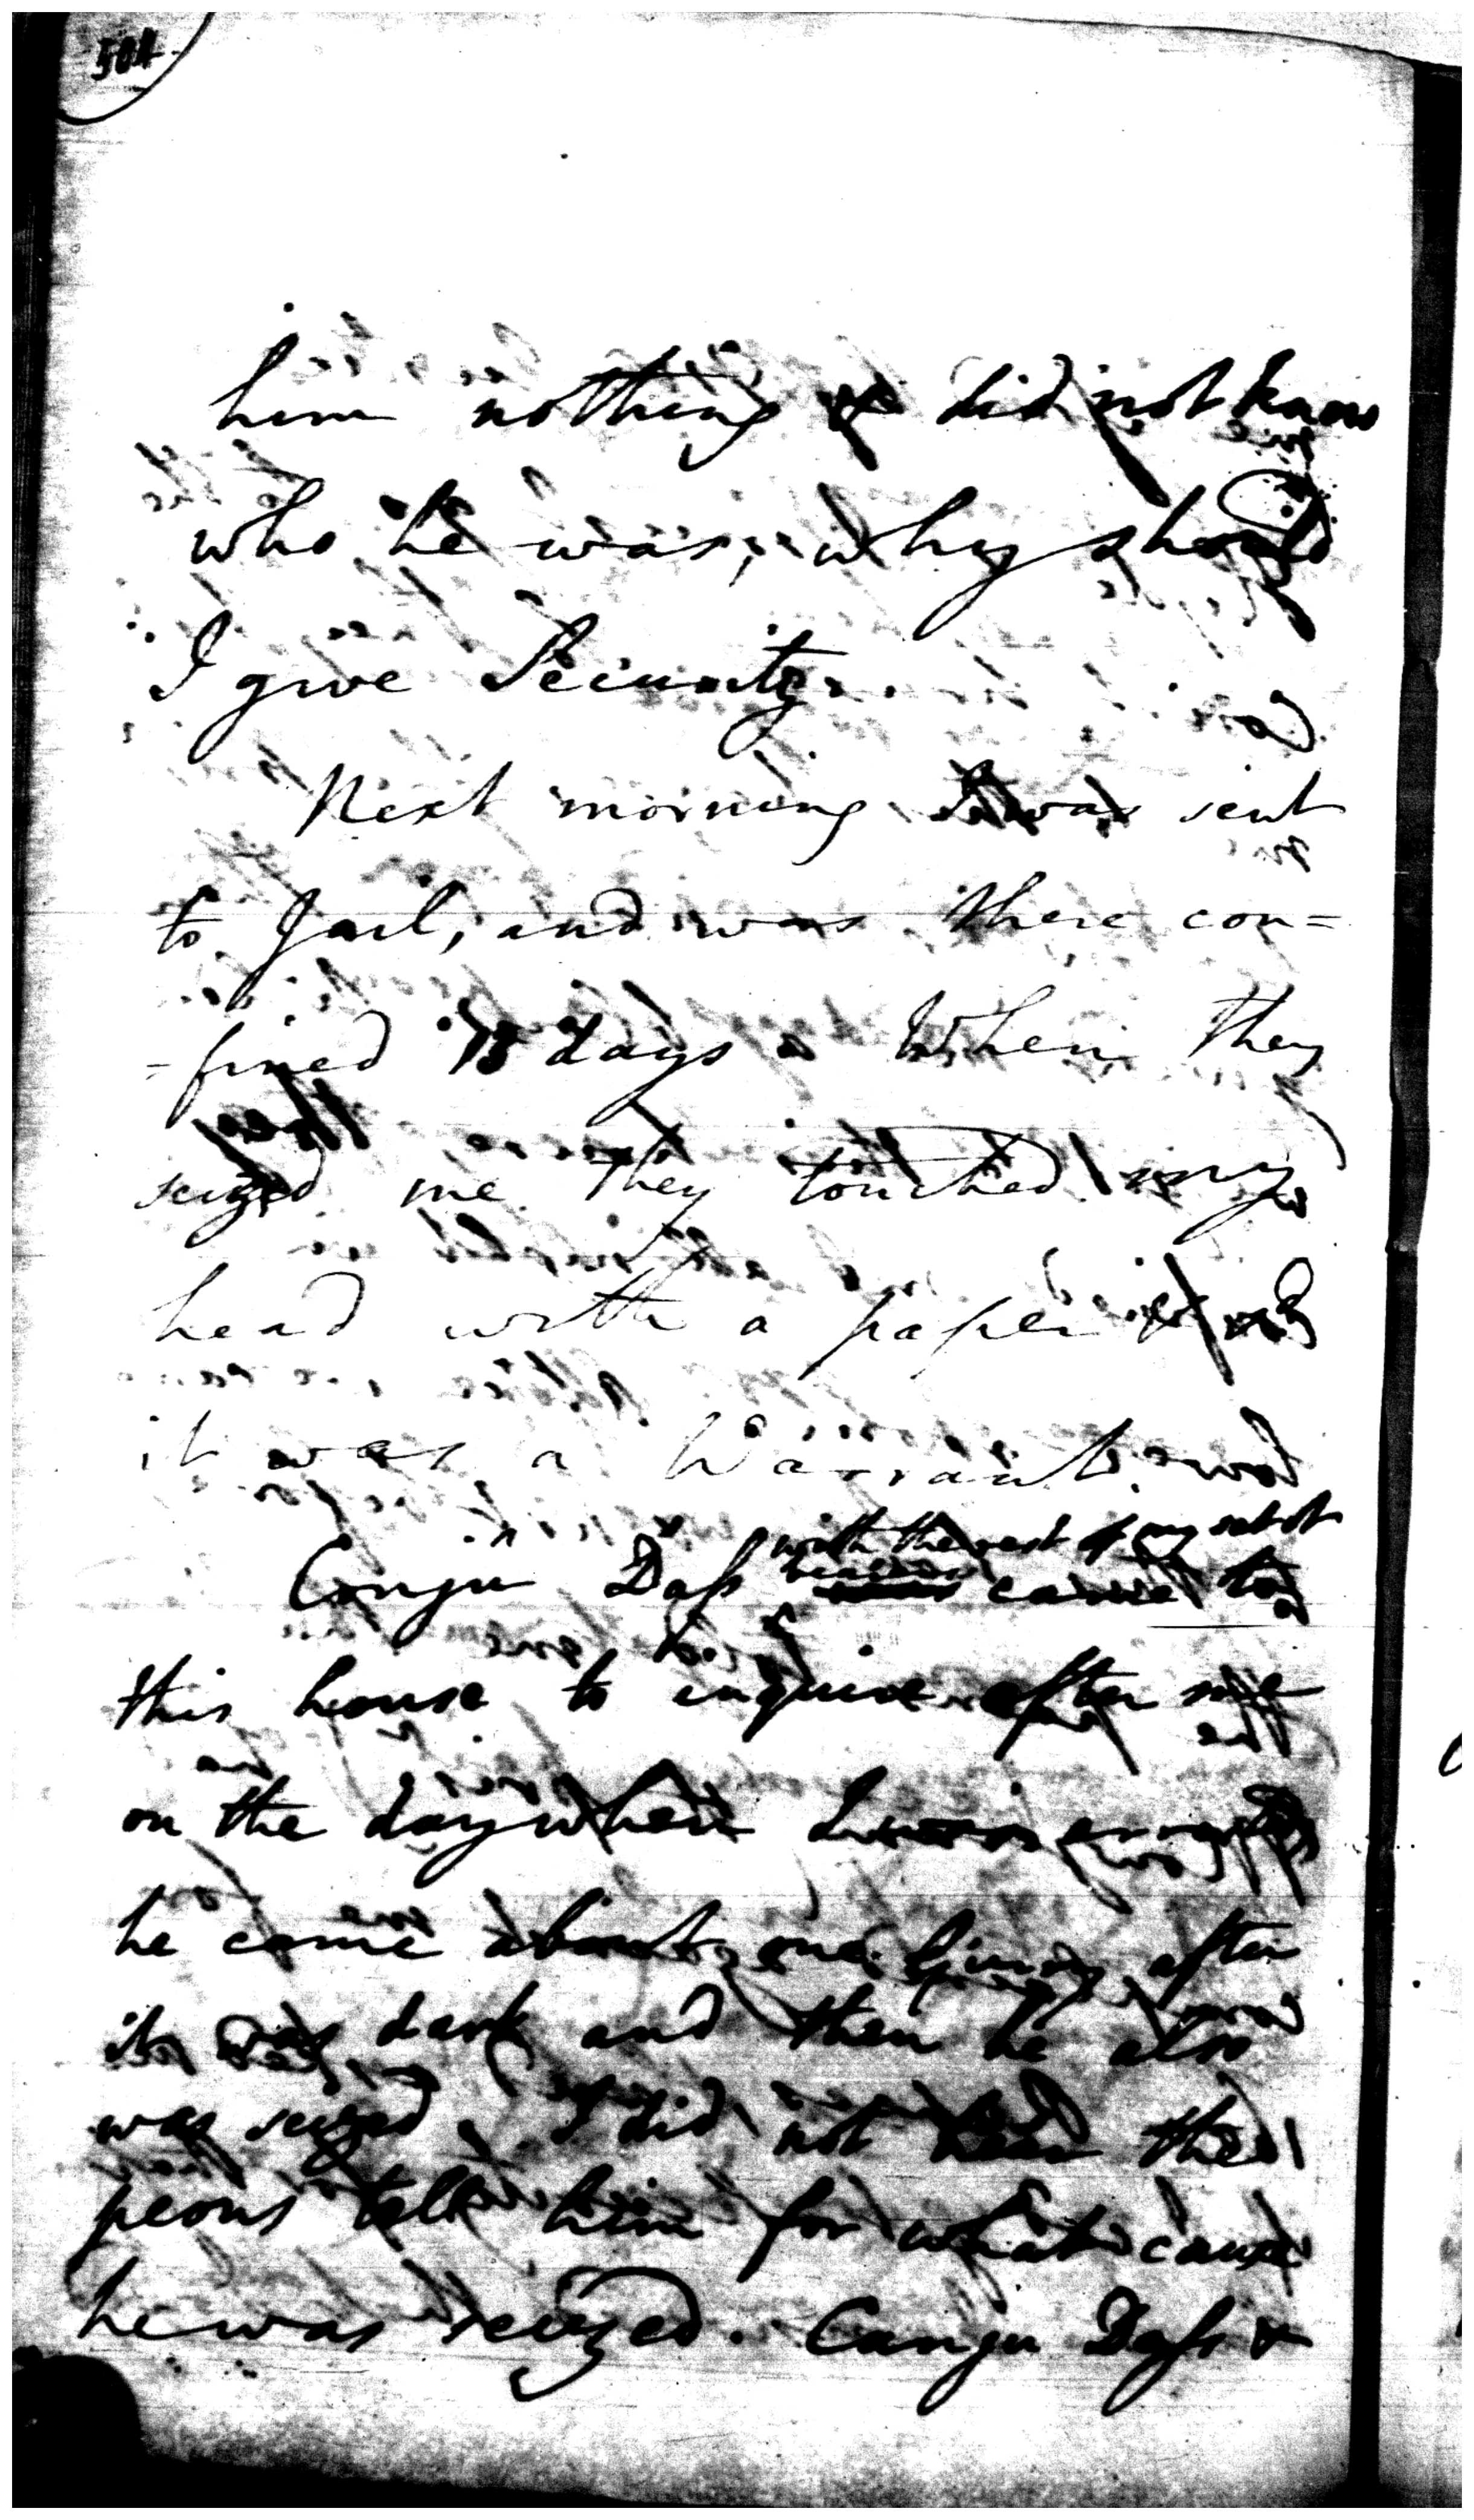 504
him nothing & did not know
who he was, why should
I give Security.
Next morning I was sent
to Jail, and was there con=
=fined 18 days. When they
seized me they touched my
head with a paper &
it was a Warrant.
with the rest of my set of
Conju Dass came to
this house to enquire after me
on the day when I was
he came about one after
it was dark and then he also
was seized. I did not hear the
peons tell him for what cause
he was seized. Canju Dass &